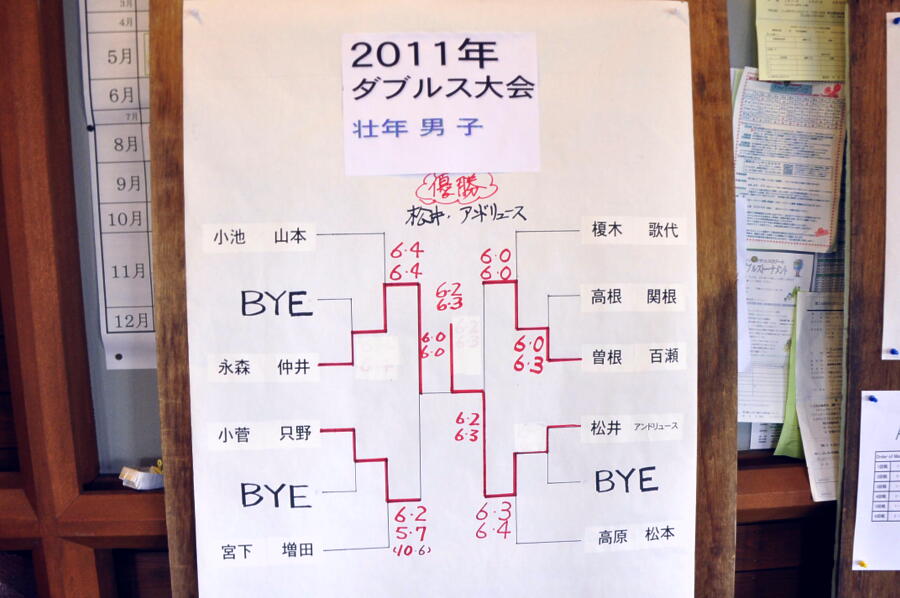 2011年
ダブルス大会
壮年 男子
優勝
松井・アンドリュース
小池 山本
BYE
永森 仲井
小菅 只野
BYE
宮下 増田
6・4
6・4
6・2
6・3
6・0
6・0
6・2
5・7
(10・6)
6・0
6・0
6・0
6・3
6・2
6・3
6・3
6・4
榎木 歌代
高根 関根
曽根 百瀬
松井 アンドリュース
BYE
高原 松本
3月
4月
5月
6月
7月
8月
9月
10月
11月
12月
Order of